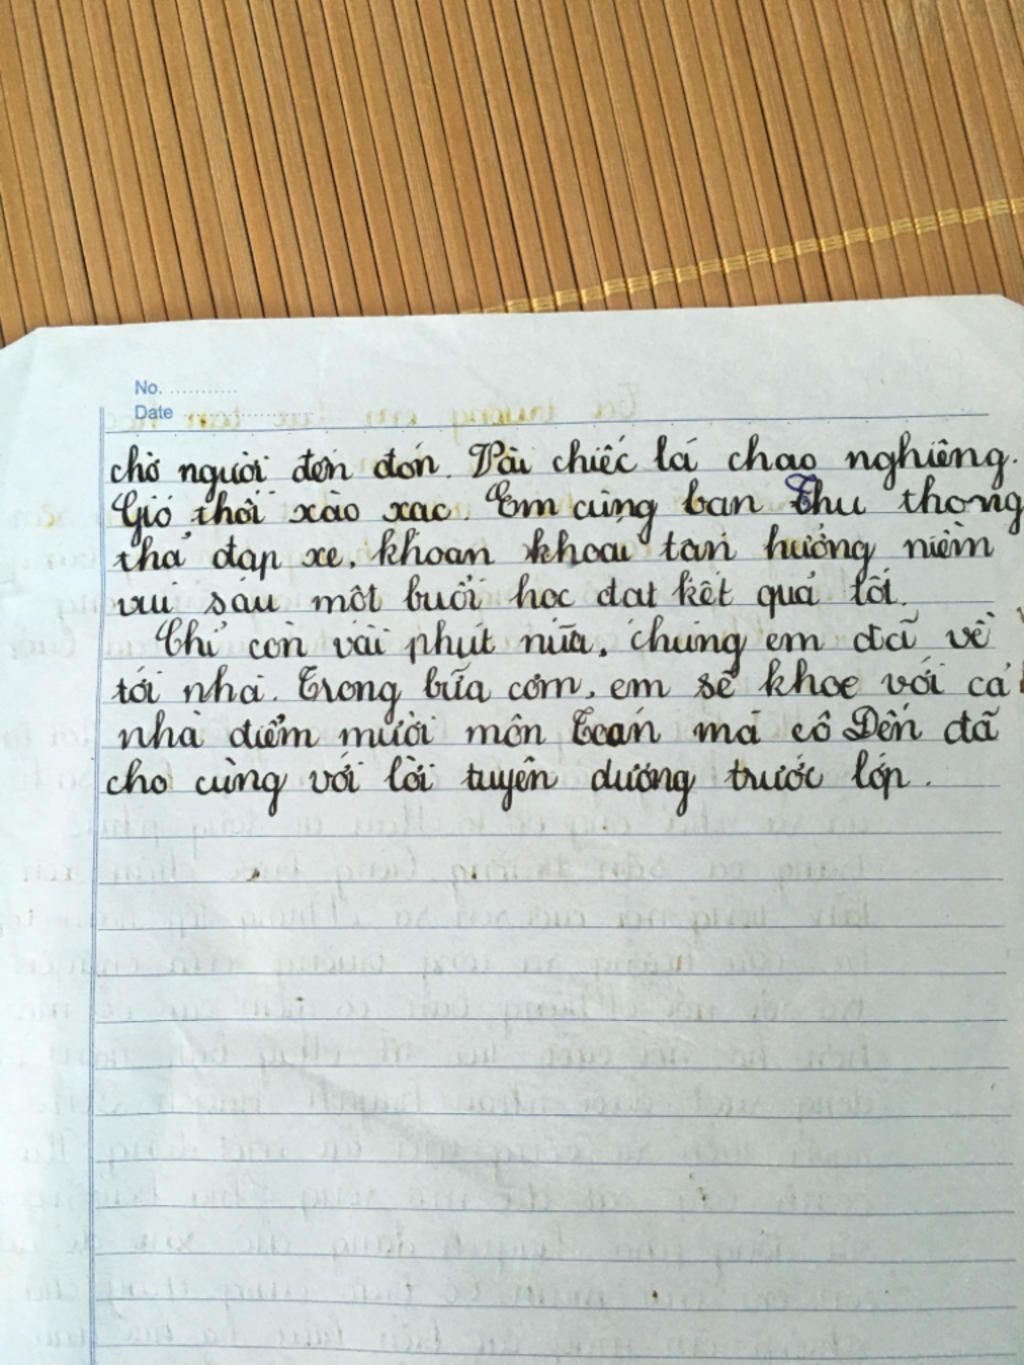 No.
Date
chờ người đến đón. Vài chiếc lá chao nghiêng.
Gió thổi xào xạc. Em cùng bạn Thu thong
thả đạp xe, khoan khoai tận hưởng niềm
vui sau một buổi học đạt kết quả tốt.
Chỉ còn vài phút nữa, chúng em đã về
tới nhà. Trong bữa cơm, em sẽ khoe với cả
nhà điểm mười môn Toán mà cô Dến đã
cho cùng với lời tuyên dương trước lớp.